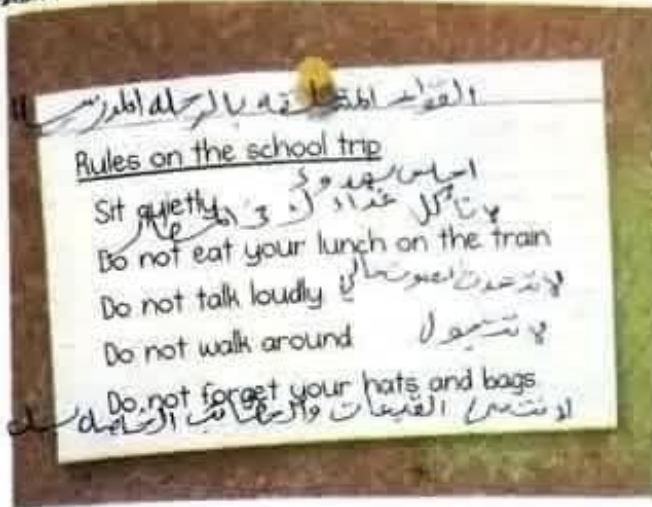 القواعد المتعلقه بالرحله المدرسيه
Rules on the school trip
اجلس بهدوء
Sit quietly
لا تأكل غداءك في القطار
Do not eat your lunch on the train
Do not talk loudly لا تتحدث بصوت عالي
Do not walk around لا تتجول
Do not forget your hats and bags
لا تنسى القبعات والحقائب الخاصه بك